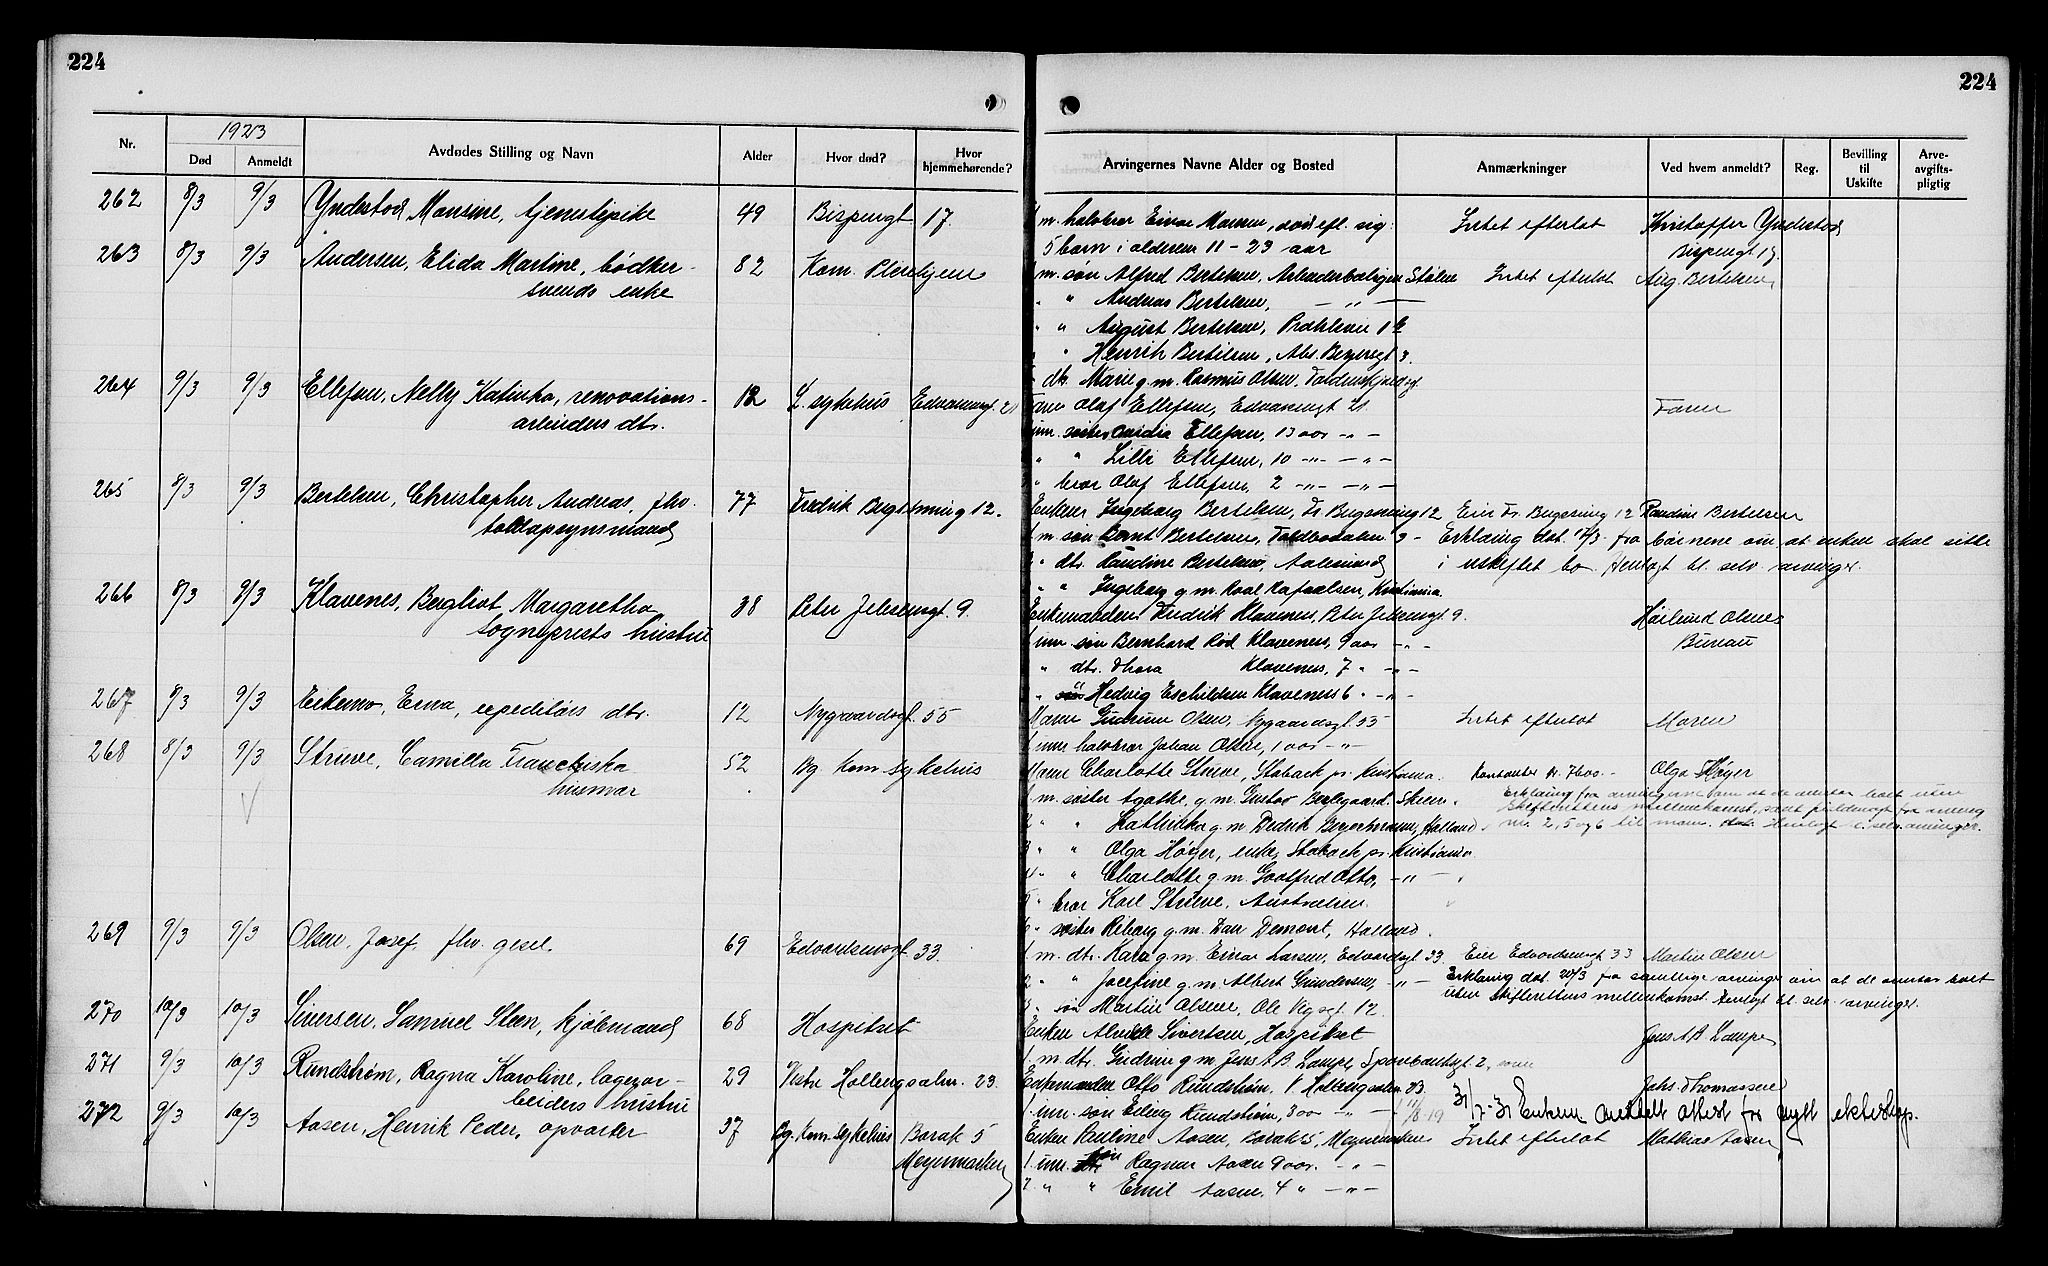 224
224
1923
Nr. Død Anmeldt Avdødes Stilling og Navn Alder Hvor død? Hvor hjemmehørende? Arvingernes Navne Alder og Bosted Anmærkninger Ved hvem anmeldt? Reg. Bevilling til Uskifte Arve-avgifts-pligtig
262 8/3 9/3 Yndestad, Monsine, tjenestepike 49 Bispengt 17.
1 m. halvbror Einar Monsen, død efl. sig: Intet efterlat Kristoffer Yndestad
5 barn i alderen 11 - 23 aar Bispengt 17.
263 8/3 9/3 Andersen, Elida Martine, bødker- 82 Kom. Pleiehjem
svends enke
1 m. søn Alfred Bertelsen, Arbeiderboligen Stølen Intet efterlat Aug. Bertelsen
" " Andreas Bertelsen, — " —
" " August Bertelsen,
" " Henrik Bertelsen,
" dtr. Marie g.m. Rasmus Olsen,
264 9/3 9/3 Ellefsen, Nelly Katinka, renovations- 12 L. sykehus Edvardsensgt. 21
arbeiders dtr.
Faren Olaf Ellefsen, Edvardsensgt 21 Faren
1 um. søster Ellefsen, 13 aar - " -
" " Lilli Ellefsen, 10 - " - - " -
" bror Olaf Ellefsen, 2 - " - - " -
265 8/3 9/3 Bertelsen, Christopher Andreas, fhv. 77 Fredrik 12.
toldopsynsmand
Enken Ingeborg Bertelsen, 12 Eier 12 Raudine Bertelsen
1 m. søn Bernt Bertelsen, Toldbodalm 3 - Erklæring dat. fra børnene om at enken skal sitte
" dtr. Raudine Bertelsen, Aalesund i uskiftet bo. Henlagt til selv. arvinger.
" " Ingeborg g.m. Roal Rafaelsen, Kristiania.
266 8/3 9/3 Klavenes, Bergliot Margaretha 38 Peter Jebsensgt. 9.
sogneprests hustru
Enkemanden Fredrik Klavenes, Peter Jebsensgt. 9. Høilund Olsens
1 um. søn Bernhard Rød Klavenes, 9 aar - " - Bureau
" dtr. Thora Klavenes, 7 " - " -
" " Hedvig Eschildsen Klavenes 6 " - " -
267 8/3 9/3 Erna, expeditørs dtr. 12 Nygaardsgt. 55
Moren Gudrun Olsen, Nygaardsgt. 55 Intet efterlat Moren
1 um halvbror Johan Olsen, 1 aar - " -
268 8/3 9/3 Struve, Camilla Franciska 52 Bg. Kom. Sykehus
husmor
Moren Charlotte Struve, Stabæk pr. Kristiania. Kontanter kr. 7600.- Olga Høyer
1 m. søster Agathe, g.m. Gustav Skien. Erklæring fra arvingerne om at de ønsker boet uten
2 " " Kathinka g.m. Didrik Holland. skifterettens mellemkomst, samt fuldmagt fra arving
nr. 2, 5 og 6 til Henlagt t. selv. arvinger.
3 " " Olga Høyer, enke, Stabæk pr. Kristiania
4 " " Charlotte g.m. Gottfred Otto, - " -
5 " bror Karl Struve, Australien.
6 " søster g.m. Holland.
269 9/3 9/3 Olsen, Josef, fhv. gesel. 69 Edvardsensgt. 33.
1 m. dtr. Kaia g.m. Einar Larsen, Edvardsgt 33. Eier Edvardsensgt 33 Martin Olsen
2 " " Josefine g.m. Albert Gundersen, - " - Erklæring dat. 20/3 fra samtlige arvinger om at de ønsker boet
3 " søn Martin Olsen, Ole Vigsgt. 12. uten skifterettens mellemkomst. Henlagt til selv. arvinger.
270 10/3 10/3 Sivertsen, Samuel Steen, kjøbmand 68 Hospitset
Enken Sivertsen, Hospitset Jens A B. Lampe
1. m. dtr. Gudrun g.m. Jens A.B. Lampe,
271 9/3 10/3 Rundstrøm, Ragna Karoline, lagerar- 29 Vestre Holbergsalm. 23.
beiders hustru
Enkemanden Otto Rundstrøm, V. Holbergsalm 23. Johs. Thomassen
1. um. søn Erling Rundstrøm, 3 aar - " - 31/7-31 Enkem. meddelt attest for nytt ekteskap.
272 9/3 10/3 Aasen, Henrik Peder, opvarter 37 Bg. Kom. Sykehus Barak 5
Møyermarken
Enken Pauline Aasen, Barak 5, Intet efterlat Mathias Aasen
1. um. søn Ragnar Aasen 9 aar. - " -
2. " " Emil Aasen, 4 " - " -